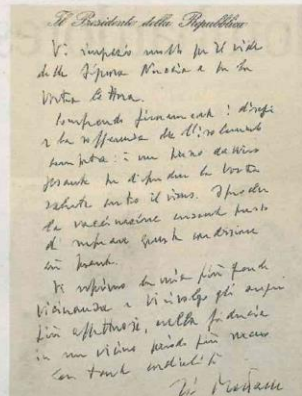 Il Presidente della Repubblica
Vi ringrazio molto per il video
della Signora Nunzia e per la
Vostra lettera.
Comprendo pienamente i disagi
e la sofferenza che l'isolamento
comporta: è un peso davvero
pesante per difendere la Vostra
salute contro il virus. Spero che
la vaccinazione consenta presto
di superare questa condizione
così pesante.
Vi esprimo la mia più grande
vicinanza e Vi rivolgo gli auguri
più affettuosi, nella fiducia
in un vicino periodo più sereno
con tanta cordialità
Mattarella